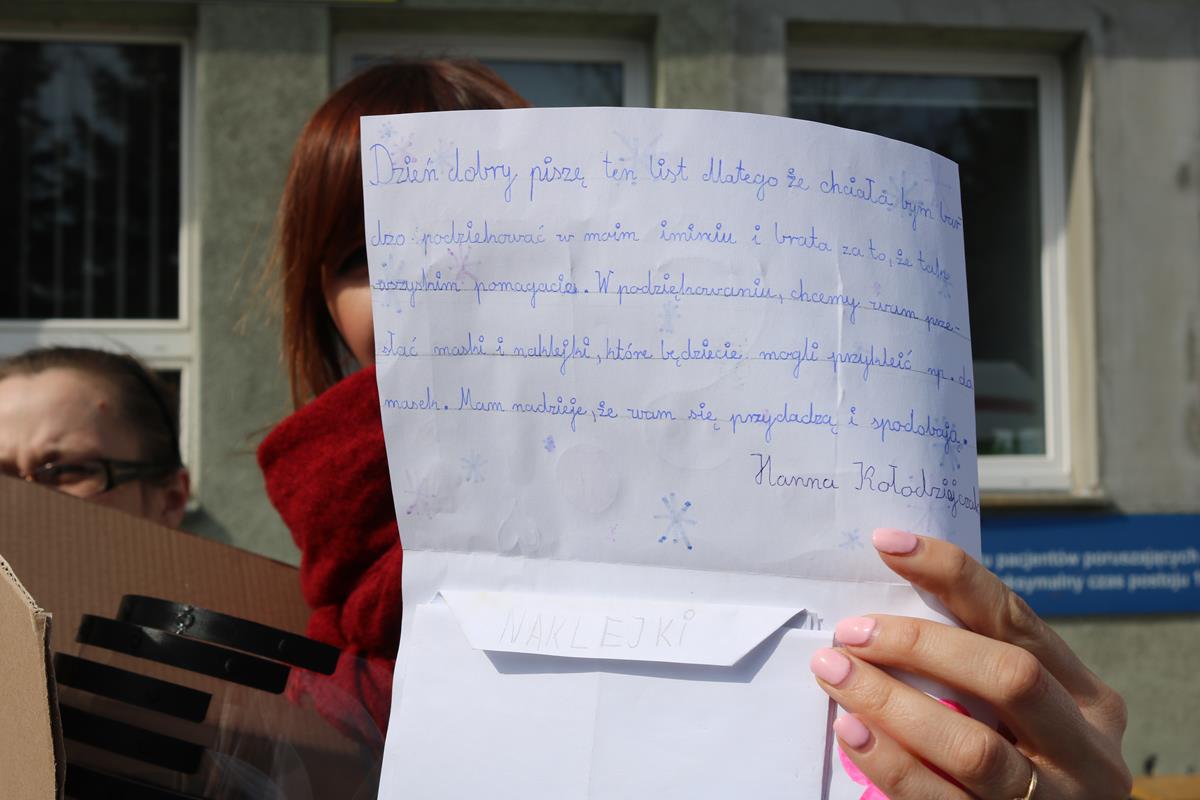 Dzień dobry piszę ten list dlatego że chciała bym bar
dzo podziekować w moim iminiu i brata za to, że tak
wszystkim pomagacie. W podziękowaniu, chcemy wam prze-
słać maski i naklejki, które będziecie mogli przykleić np. do
masek. Mam nadzieje, że wam się przydadzą i spodobają.
Hanna Kołodziejczak
NAKLEJKI
pacjentów poruszających
czas postoju